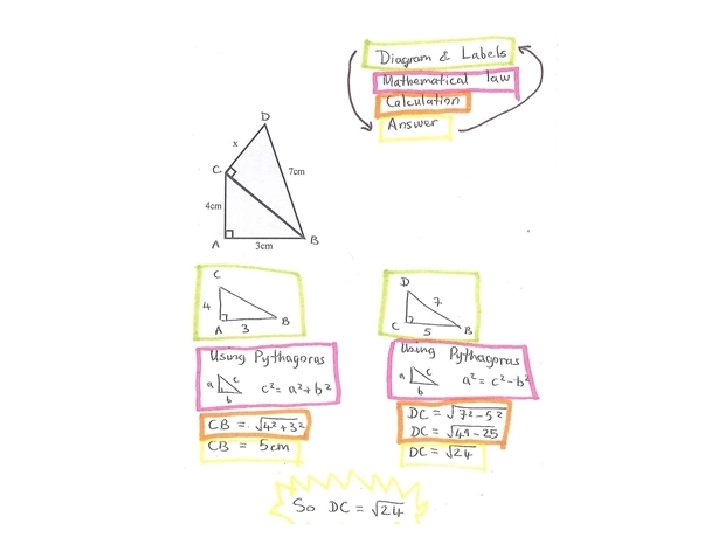 Diagram & Labels
Mathematical law
Calculation
Answer
D
x
C
7cm
4cm
A
3cm
B
C
4
A
3
B
D
7
C
5
B
Using Pythagoras
a
c
b
c² = a² + b²
CB = √4² + 3²
CB = 5cm
Using Pythagoras
a
c
b
a² = c² - b²
DC = √7² - 5²
DC = √49 - 25
DC = √24
So DC = √24